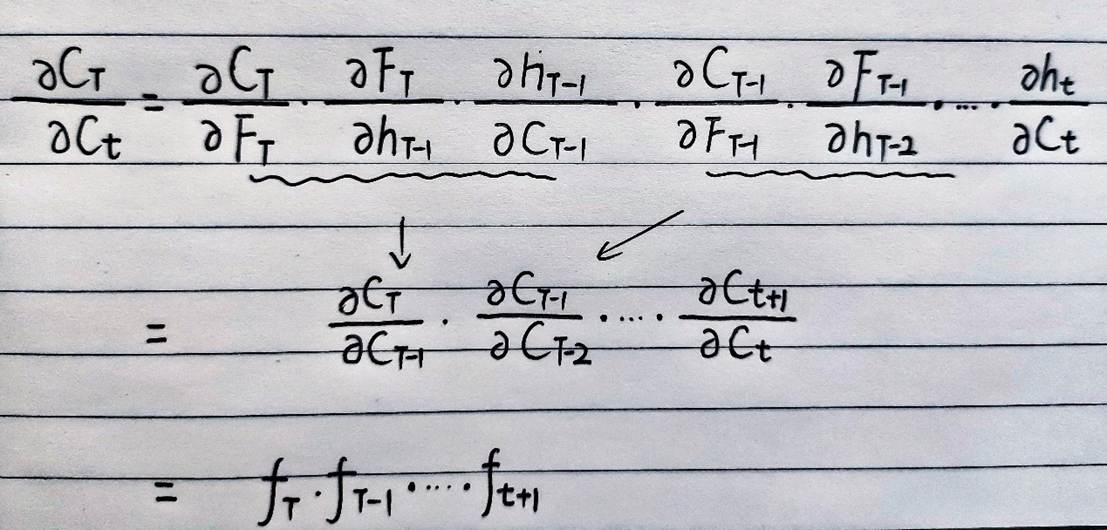 ∂C_T/∂C_t = ∂C_T/∂F_T · ∂F_T/∂h_{T-1} · ∂h_{T-1}/∂C_{T-1} · ∂C_{T-1}/∂F_{T-1} · ∂F_{T-1}/∂h_{T-2} · .... · ∂h_t/∂C_t
= ∂C_T/∂C_{T-1} · ∂C_{T-1}/∂C_{T-2} · .... · ∂C_{t+1}/∂C_t
= f_T · f_{T-1} · .... · f_{t+1}